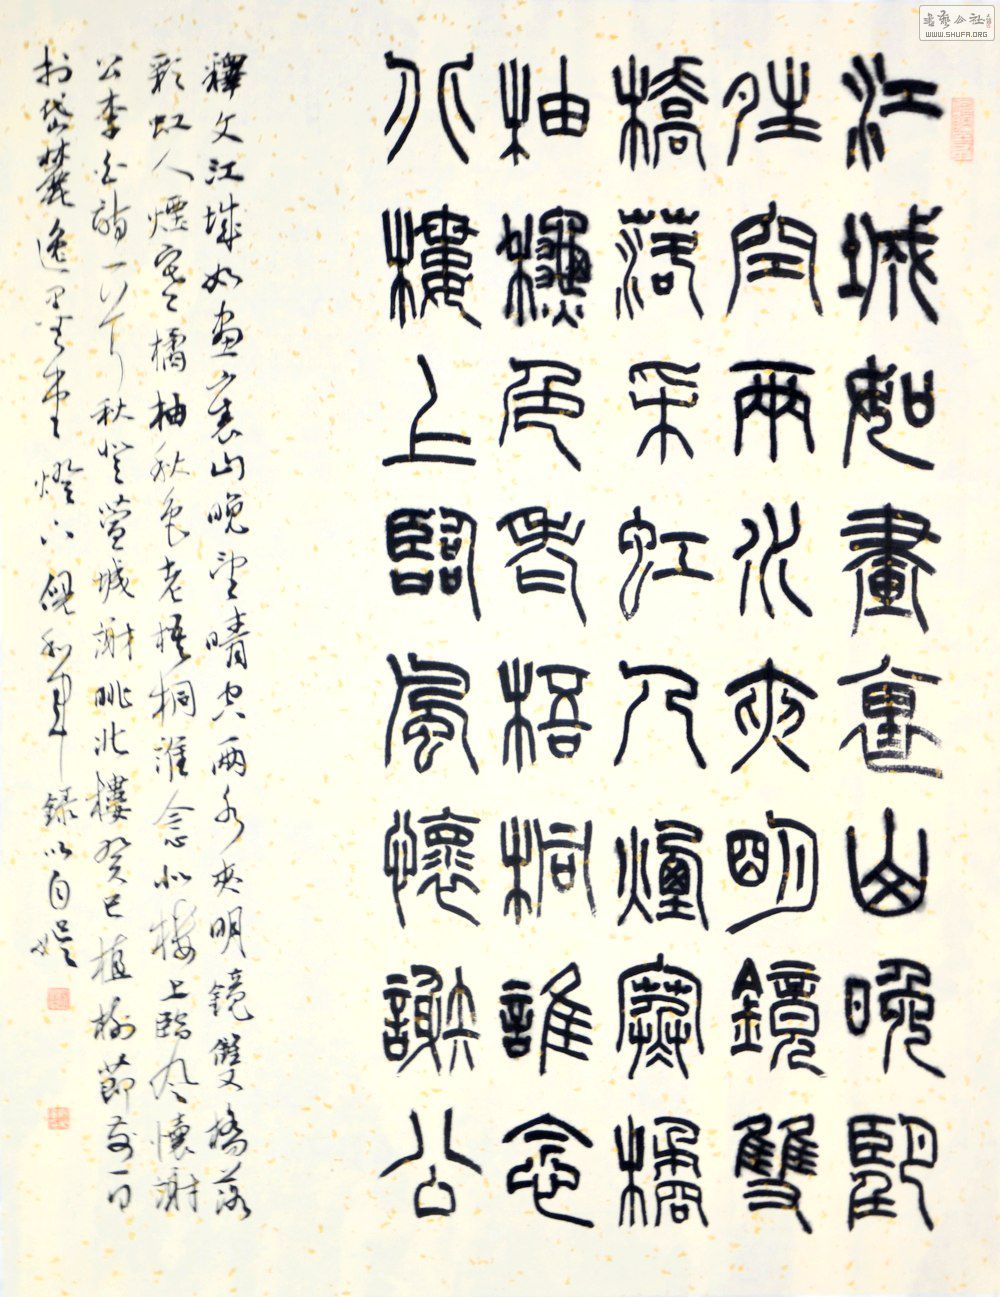 江城如畫裏山晚望
晴空兩水夾明鏡雙
橋落采虹人煙寒橘
柚穐色老梧桐誰念
北樓上臨風懷謝公
釋文江城如畫裏山晚望晴空兩水夾明鏡雙橋落
彩虹人煙寒橘柚秋色老梧桐誰念北樓上臨風懷謝
公李白詩一首秋登宣城謝眺北樓癸巳植樹節前一日
於岱麓逸墨堂燈下 錄以自娛
書藝公社
WWW.SHUFA.ORG